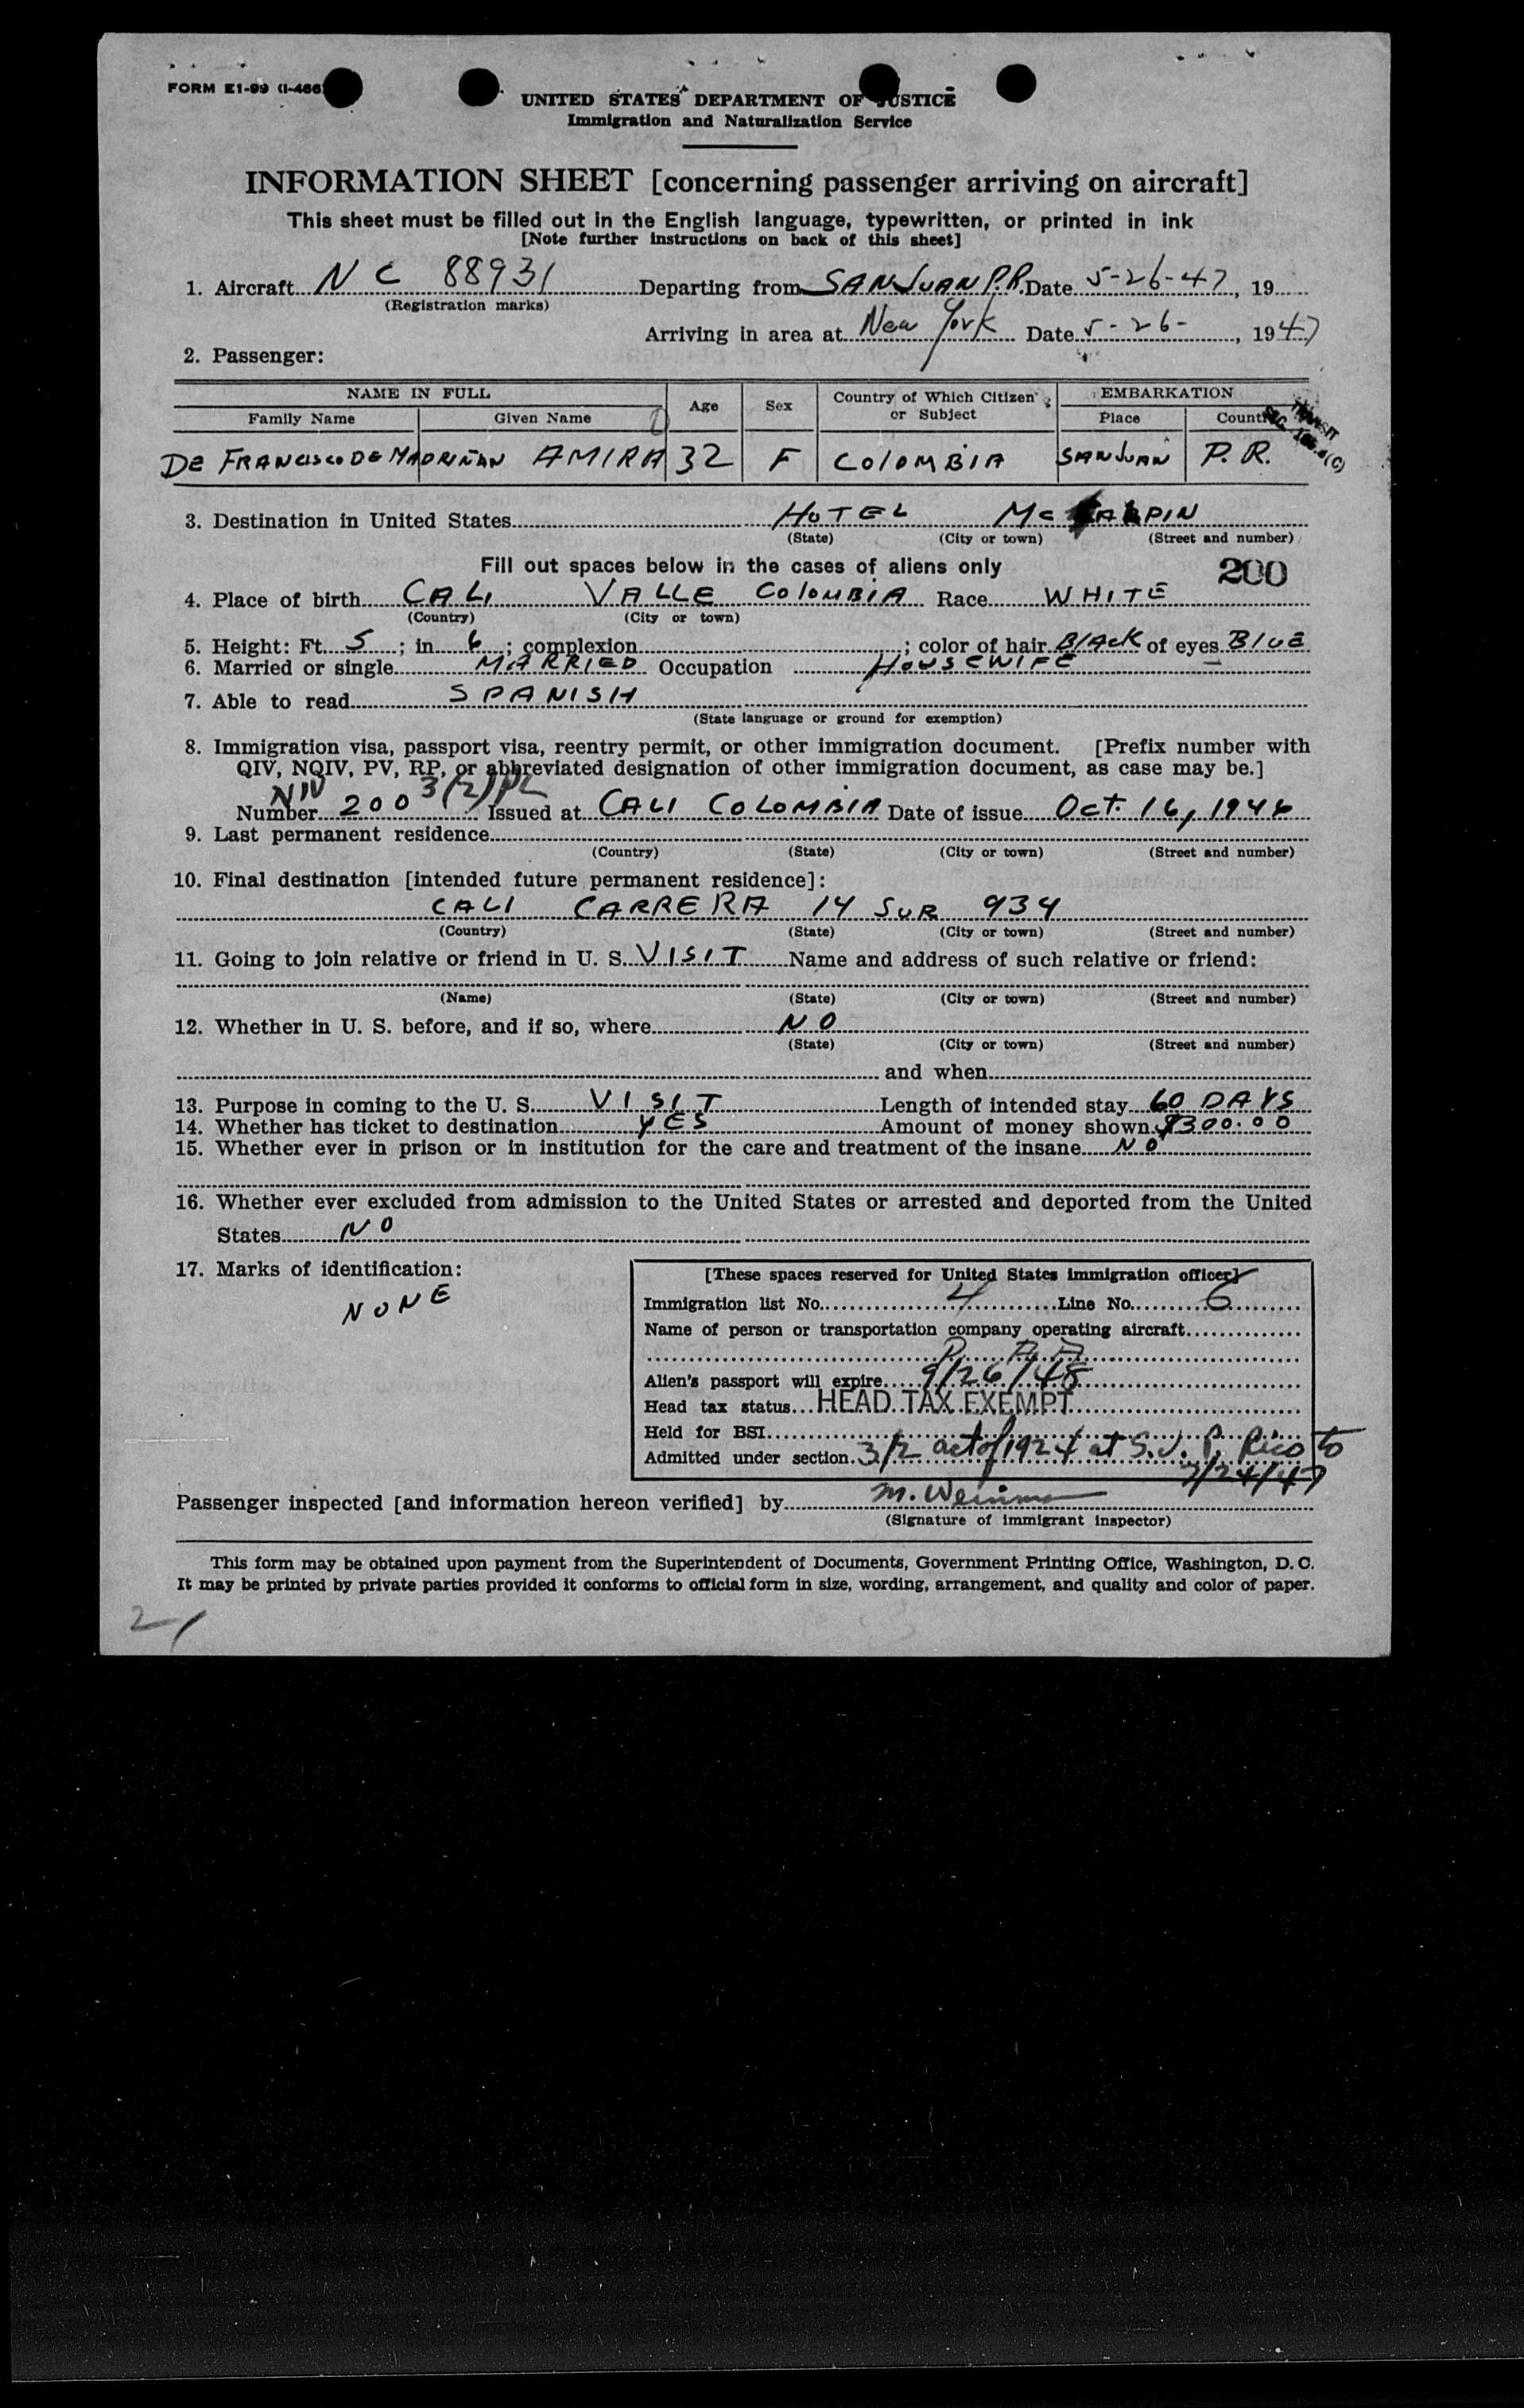 FORM E1-99 (I-466)
UNITED STATES DEPARTMENT OF JUSTICE
Immigration and Naturalization Service
INFORMATION SHEET [concerning passenger arriving on aircraft]
This sheet must be filled out in the English language, typewritten, or printed in ink
[Note further instructions on back of this sheet]
1. Aircraft N C 88931 Departing from SAN JUAN P.R. Date 5-26-47, 19
(Registration marks)
Arriving in area at New York Date 5-26-, 1947
2. Passenger:
NAME IN FULL Age Sex Country of Which Citizen or Subject EMBARKATION
Family Name Given Name Place Country
TRANSIT
DE FRANCISCO DE MADRIÑAN AMIRA 32 F COLOMBIA SAN JUAN P.R.
3. Destination in United States HOTEL MC ALPIN
(State) (City or town) (Street and number)
Fill out spaces below in the cases of aliens only 200
4. Place of birth CALI VALLE COLOMBIA Race WHITE
(Country) (City or town)
5. Height: Ft. 5; in. 6; complexion; color of hair BLACK of eyes BLUE
6. Married or single MARRIED Occupation HOUSEWIFE
7. Able to read SPANISH
(State language or ground for exemption)
8. Immigration visa, passport visa, reentry permit, or other immigration document. [Prefix number with
QIV, NQIV, PV, RP, or abbreviated designation of other immigration document, as case may be.]
NIV 3(2)
Number 200 Issued at CALI COLOMBIA Date of issue OCT. 16, 1946
9. Last permanent residence
(Country) (State) (City or town) (Street and number)
10. Final destination [intended future permanent residence]:
CALI CARRERA 14 SUR 934
(Country) (State) (City or town) (Street and number)
11. Going to join relative or friend in U. S. VISIT Name and address of such relative or friend:
(Name) (State) (City or town) (Street and number)
12. Whether in U. S. before, and if so, where NO
(State) (City or town) (Street and number)
and when
13. Purpose in coming to the U. S. VISIT Length of intended stay 60 DAYS
14. Whether has ticket to destination YES Amount of money shown $300.00
15. Whether ever in prison or in institution for the care and treatment of the insane NO
16. Whether ever excluded from admission to the United States or arrested and deported from the United
States NO
17. Marks of identification:
NONE
[These spaces reserved for United States immigration officer]
Immigration list No. 4 Line No. 6
Name of person or transportation company operating aircraft
P. A. A.
Alien's passport will expire 9/26/48
Head tax status HEAD TAX EXEMPT
Held for BSI
Admitted under section 3/2 act of 1924 at S.J. P. Rico to
7/24/47
Passenger inspected [and information hereon verified] by M.
(Signature of immigrant inspector)
This form may be obtained upon payment from the Superintendent of Documents, Government Printing Office, Washington, D. C.
It may be printed by private parties provided it conforms to official form in size, wording, arrangement, and quality and color of paper.
21